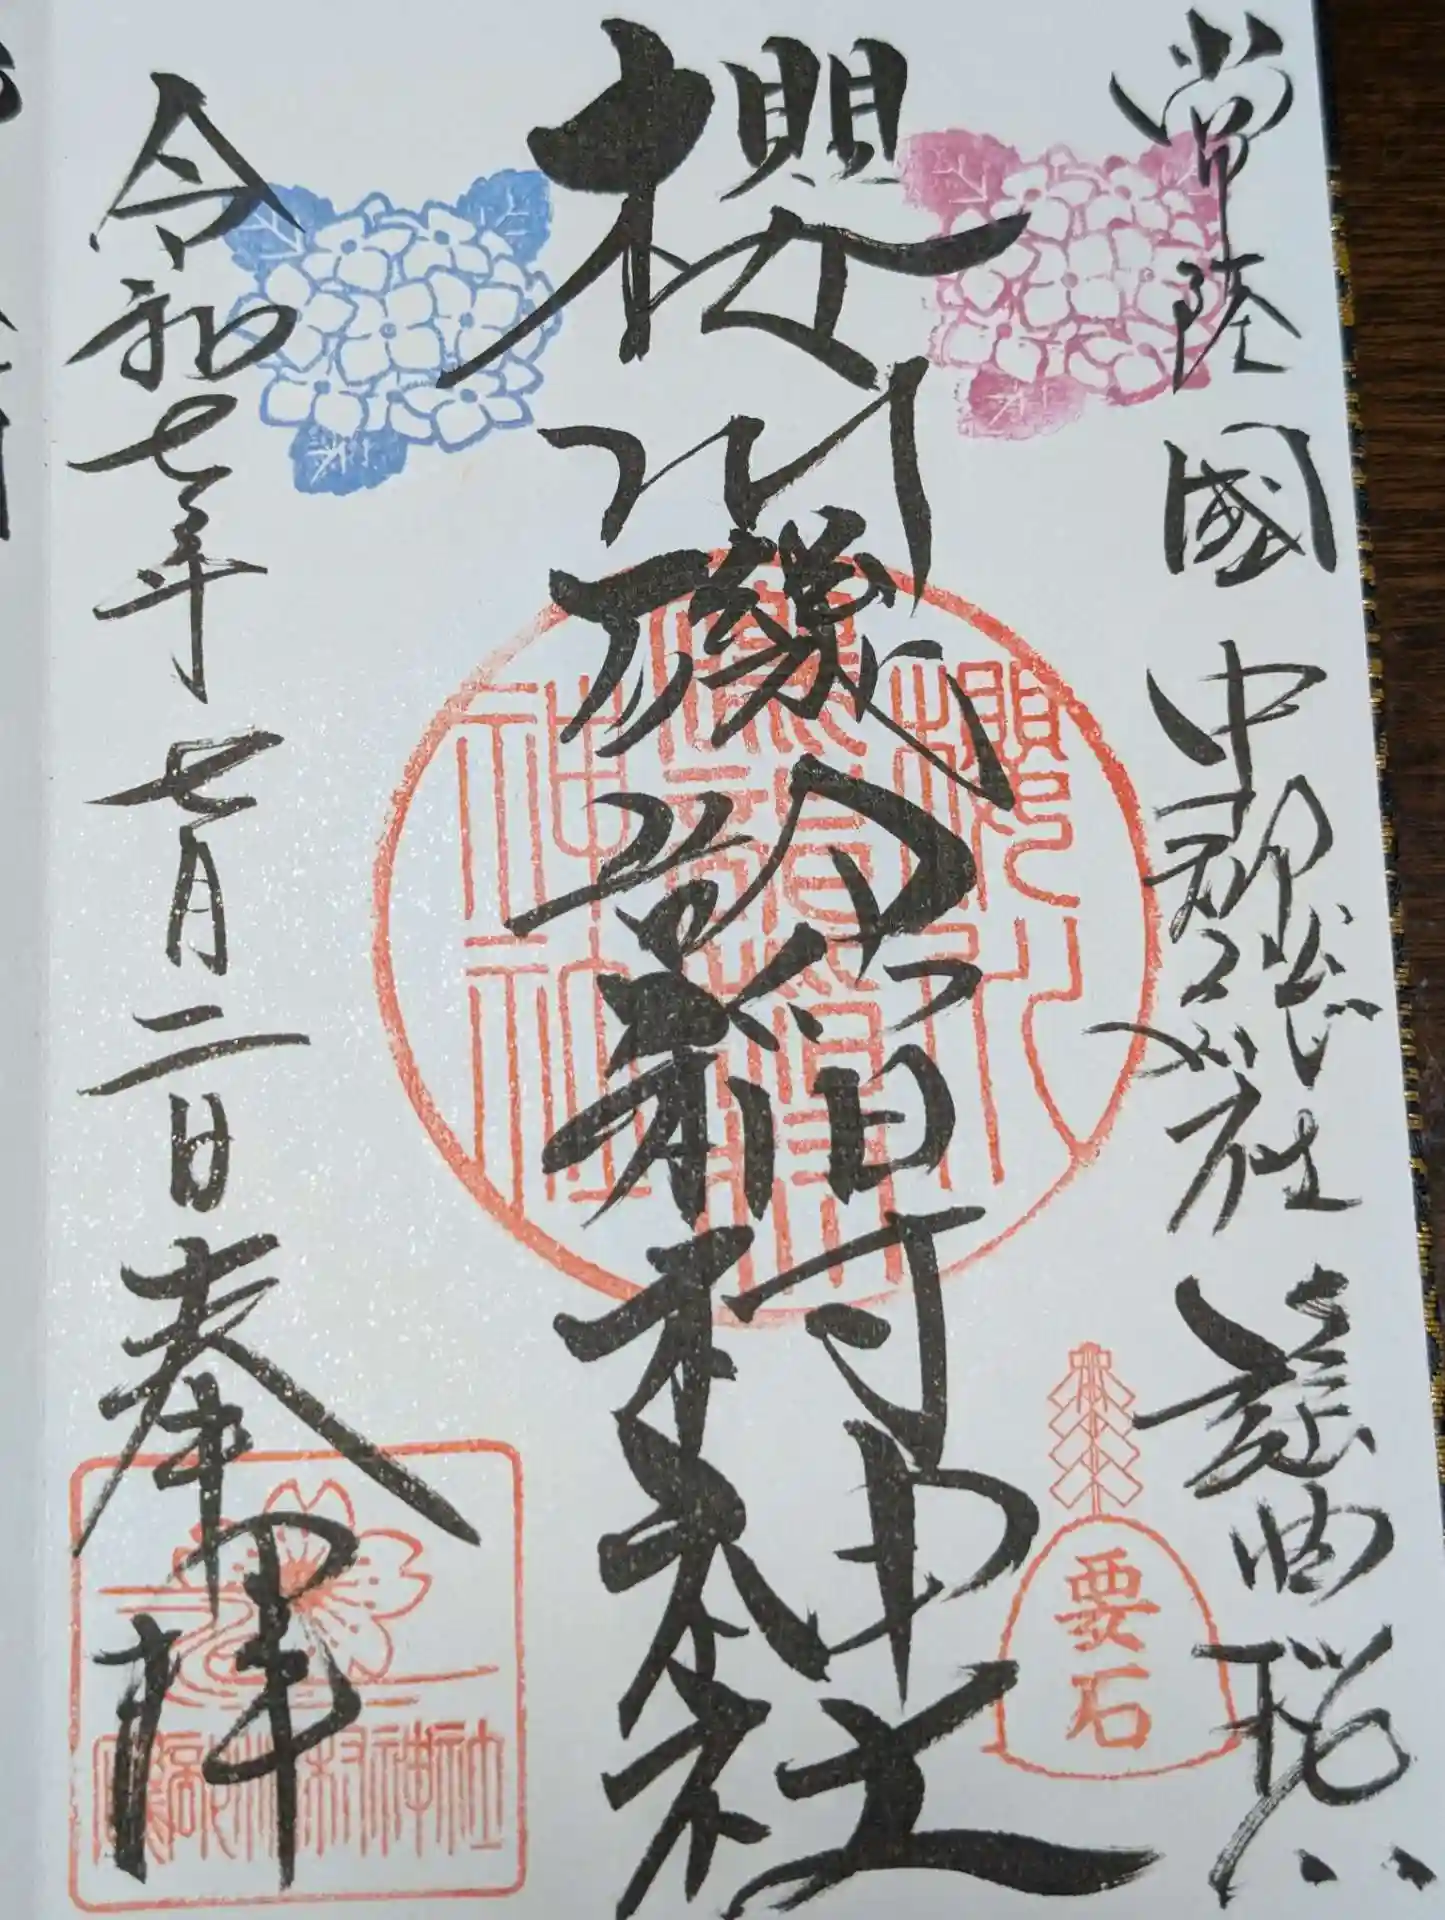 常陸國 中郡総社 謡曲発祥
櫻川磯部稲村神社
櫻川 磯部稲村 神社
要石
令和七年 七月二日 奉拝
磯部稲村神社